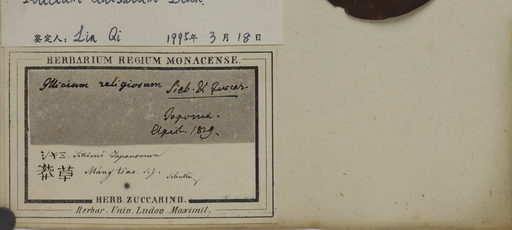 Illicium anisatum Linn.
鉴定人: Lin Qi 1995年 3月18日
HERBARIUM REGIUM MONACENSE.
Illicium religiosum Sieb. & Zuccar.
Japonia.
1829.
シキミ Sikimi Japanorum
莽草 Màng tsao.
HERB. ZUCCARINII.
Herbar. Univ. Ludov. Maximil.